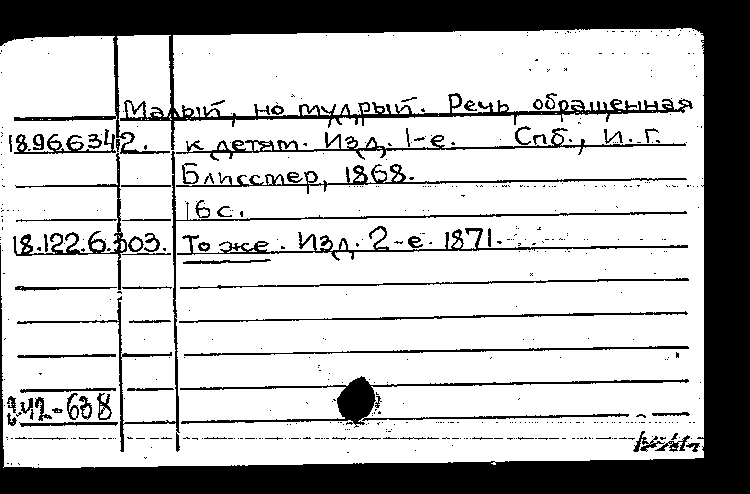 Малый, но мудрый. Речь, обращенная
18.96.6.342. к детям. Изд. 1-е. Спб., И. Г.
Блисстер, 1868.
16 с.
18.122.6.303. То же. Изд. 2-е. 1871.
-638